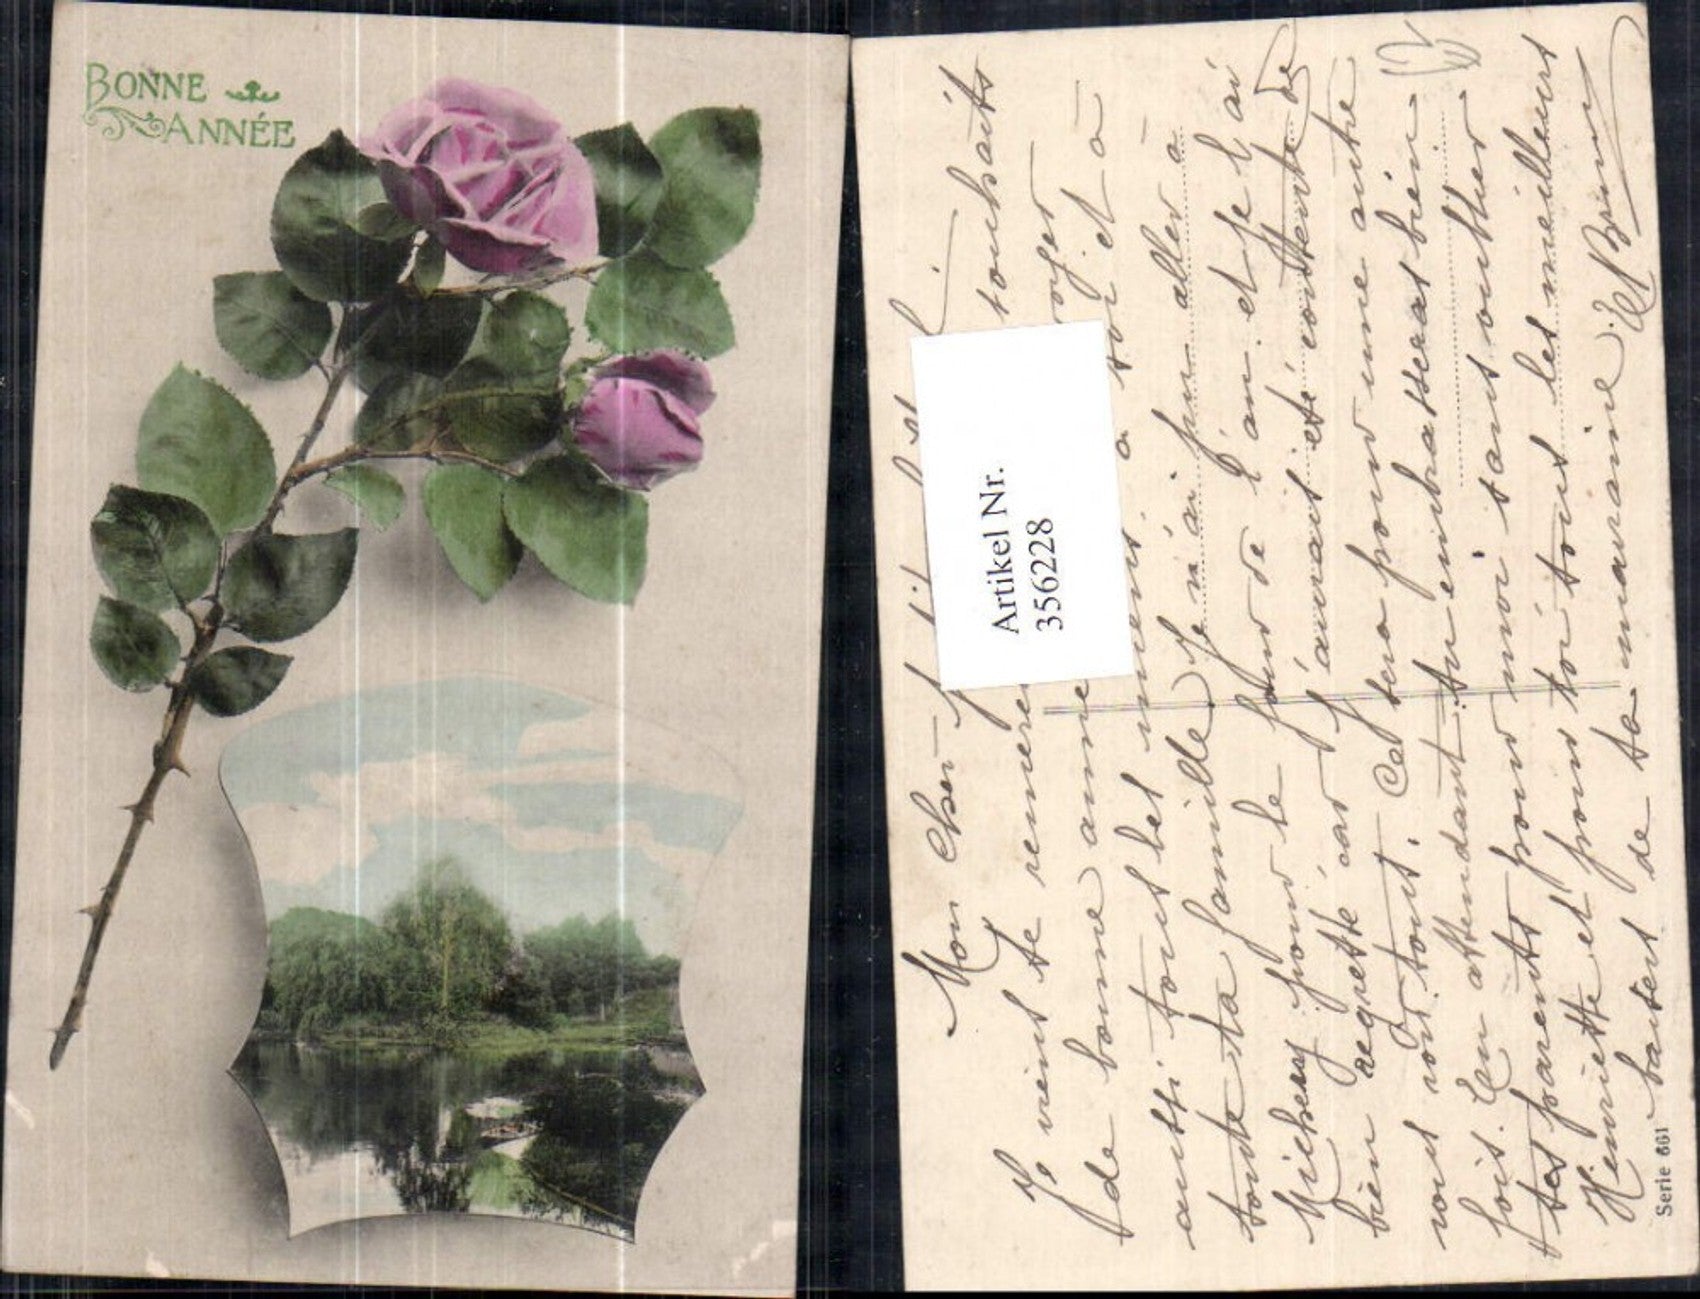 BONNE
ANNÉE
Artikel Nr.
356228
Mon Cher
Je viens te remer souhaits
de bonne anne toi et à
aussi tous les miens à
toute ta famille Je n'ai pu aller à
Michery pour le jour de l'an et je l'ai
bien regretté car j'aurais été contente de
vous voir tous. Ce sera pour une autre
fois. En attendant tu embrasseras bien
tes parents pour moi sans oublier
Henriette et pour toi tous les meilleurs
baisers de ta marraine
Serie 661